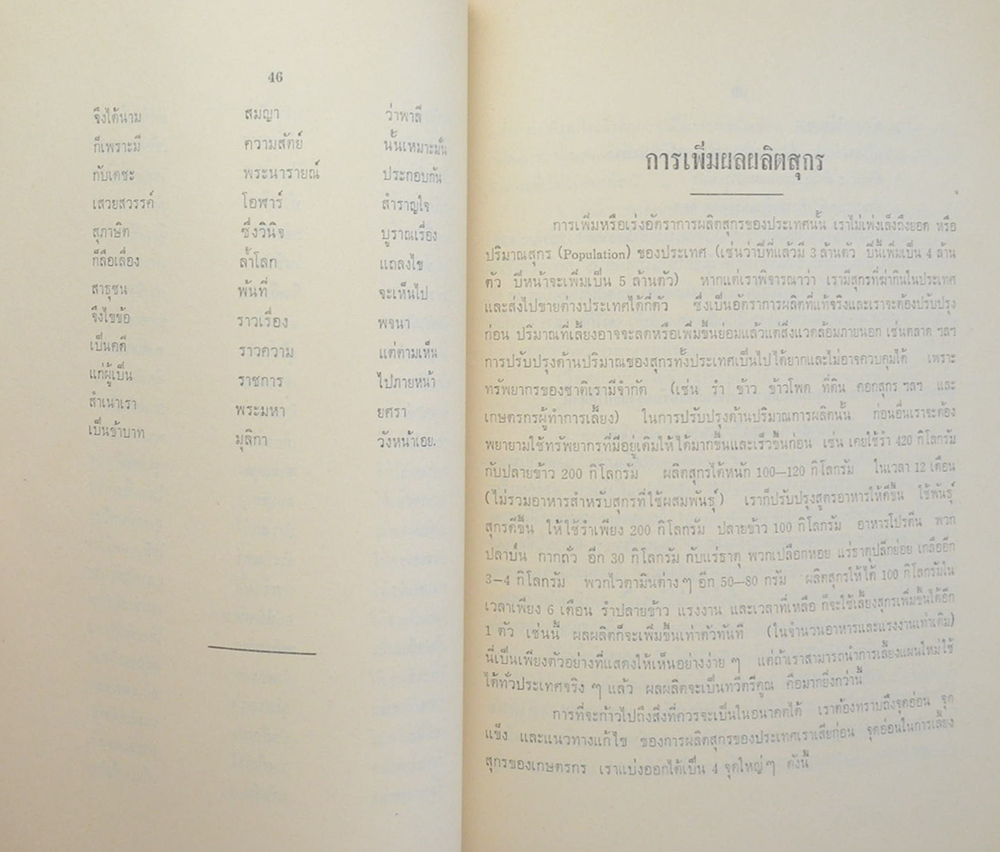 46
จึงได้นาม สมญา ว่าพาลี
ก็เพราะมี ความสัตย์ นั้นเหมาะมั่น
กับเดชะ พระนารายณ์ ประกอบกัน
เสวยสวรรค์ โอฬาร์ สำราญใจ
สุภาษิต ซึ่งวินิจ บูราณเรื่อง
ก็ลือเลื่อง ล้ำโลก แถลงไข
สาธุชน พ้นที่ จะเห็นไป
จึงไขข้อ ราวเรื่อง พจนา
เป็นคติ ราวความ แต่ตามเห็น
แก่ผู้เป็น ราชการ ไปภายหน้า
สำเนาเรา พระมหา ยศรา
เป็นข้าบาท มุลิกา วังหน้าเอย.
การเพิ่มผลผลิตสุกร
การเพิ่มหรือเร่งอัตราการผลิตสุกรของประเทศนั้น เราไม่เพ่งเล็งถึงยอด หรือ
ปริมาณสุกร (Population) ของประเทศ (เช่นว่าปีที่แล้วมี 3 ล้านตัว ปีนี้เพิ่มเป็น 4 ล้าน
ตัว ปีหน้าจะเพิ่มเป็น 5 ล้านตัว) หากแต่เราพิจารณาว่า เรามีสุกรที่ฆ่ากินในประเทศ
และส่งไปขายต่างประเทศได้กี่ตัว ซึ่งเป็นอัตราการผลิตที่แท้จริงและเราจะต้องปรับปรุง
ก่อน ปริมาณที่เลี้ยงอาจจะลดหรือเพิ่มขึ้นย่อมแล้วแต่สิ่งแวดล้อมภายนอก เช่นตลาด ฯลฯ
การปรับปรุงด้านปริมาณของสุกรทั้งประเทศเป็นไปได้ยากและไม่อาจควบคุมได้ เพราะ
ทรัพยากรของชาติเรามีจำกัด (เช่น รำ ข้าว ข้าวโพด ที่ดิน คอกสุกร ฯลฯ และ
เกษตรกรผู้ทำการเลี้ยง) ในการปรับปรุงด้านปริมาณการผลิตนั้น ก่อนอื่นเราจะต้อง
พยายามใช้ทรัพยากรที่มีอยู่เดิมให้ได้มากขึ้นและเร็วขึ้นก่อน เช่น เคยใช้รำ 420 กิโลกรัม
กับปลายข้าว 200 กิโลกรัม ผลิตสุกรได้หนัก 100—120 กิโลกรัม ในเวลา 12 เดือน
(ไม่รวมอาหารสำหรับสุกรที่ใช้ผสมพันธุ์) เราก็ปรับปรุงสูตรอาหารให้ดีขึ้น ใช้พันธุ์
สุกรดีขึ้น ให้ใช้รำเพียง 200 กิโลกรัม ปลายข้าว 100 กิโลกรัม อาหารโปรตีน พวก
ปลาป่น กากถั่ว อีก 30 กิโลกรัม กับแร่ธาตุ พวกเปลือกหอย แร่ธาตุปลีกย่อย เกลืออีก
3—4 กิโลกรัม พวกไวตามินต่าง ๆ อีก 50—80 กรัม ผลิตสุกรให้ได้ 100 กิโลกรัมใน
เวลาเพียง 6 เดือน รำปลายข้าว แรงงาน และเวลาที่เหลือ ก็จะใช้เลี้ยงสุกรเพิ่มขึ้นได้อีก
1 ตัว เช่นนี้ ผลผลิตก็จะเพิ่มขึ้นเท่าตัวทันที (ในจำนวนอาหารและแรงงานเท่าเดิม)
นี่เป็นเพียงตัวอย่างที่แสดงให้เห็นอย่างง่าย ๆ แต่ถ้าเราสามารถนำการเลี้ยงแผนใหม่ใช้
ได้ทั่วประเทศจริง ๆ แล้ว ผลผลิตจะเป็นทวีตรีคูณ คือมากยิ่งกว่านี้
การที่จะก้าวไปถึงสิ่งที่ควรจะเป็นในอนาคตได้ เราต้องทราบถึงจุดอ่อน จุด
แข็ง และแนวทางแก้ไข ของการผลิตสุกรของประเทศเราเสียก่อน จุดอ่อนในการเลี้ยง
สุกรของเกษตรกร เราแบ่งออกได้เป็น 4 จุดใหญ่ ๆ ดังนี้